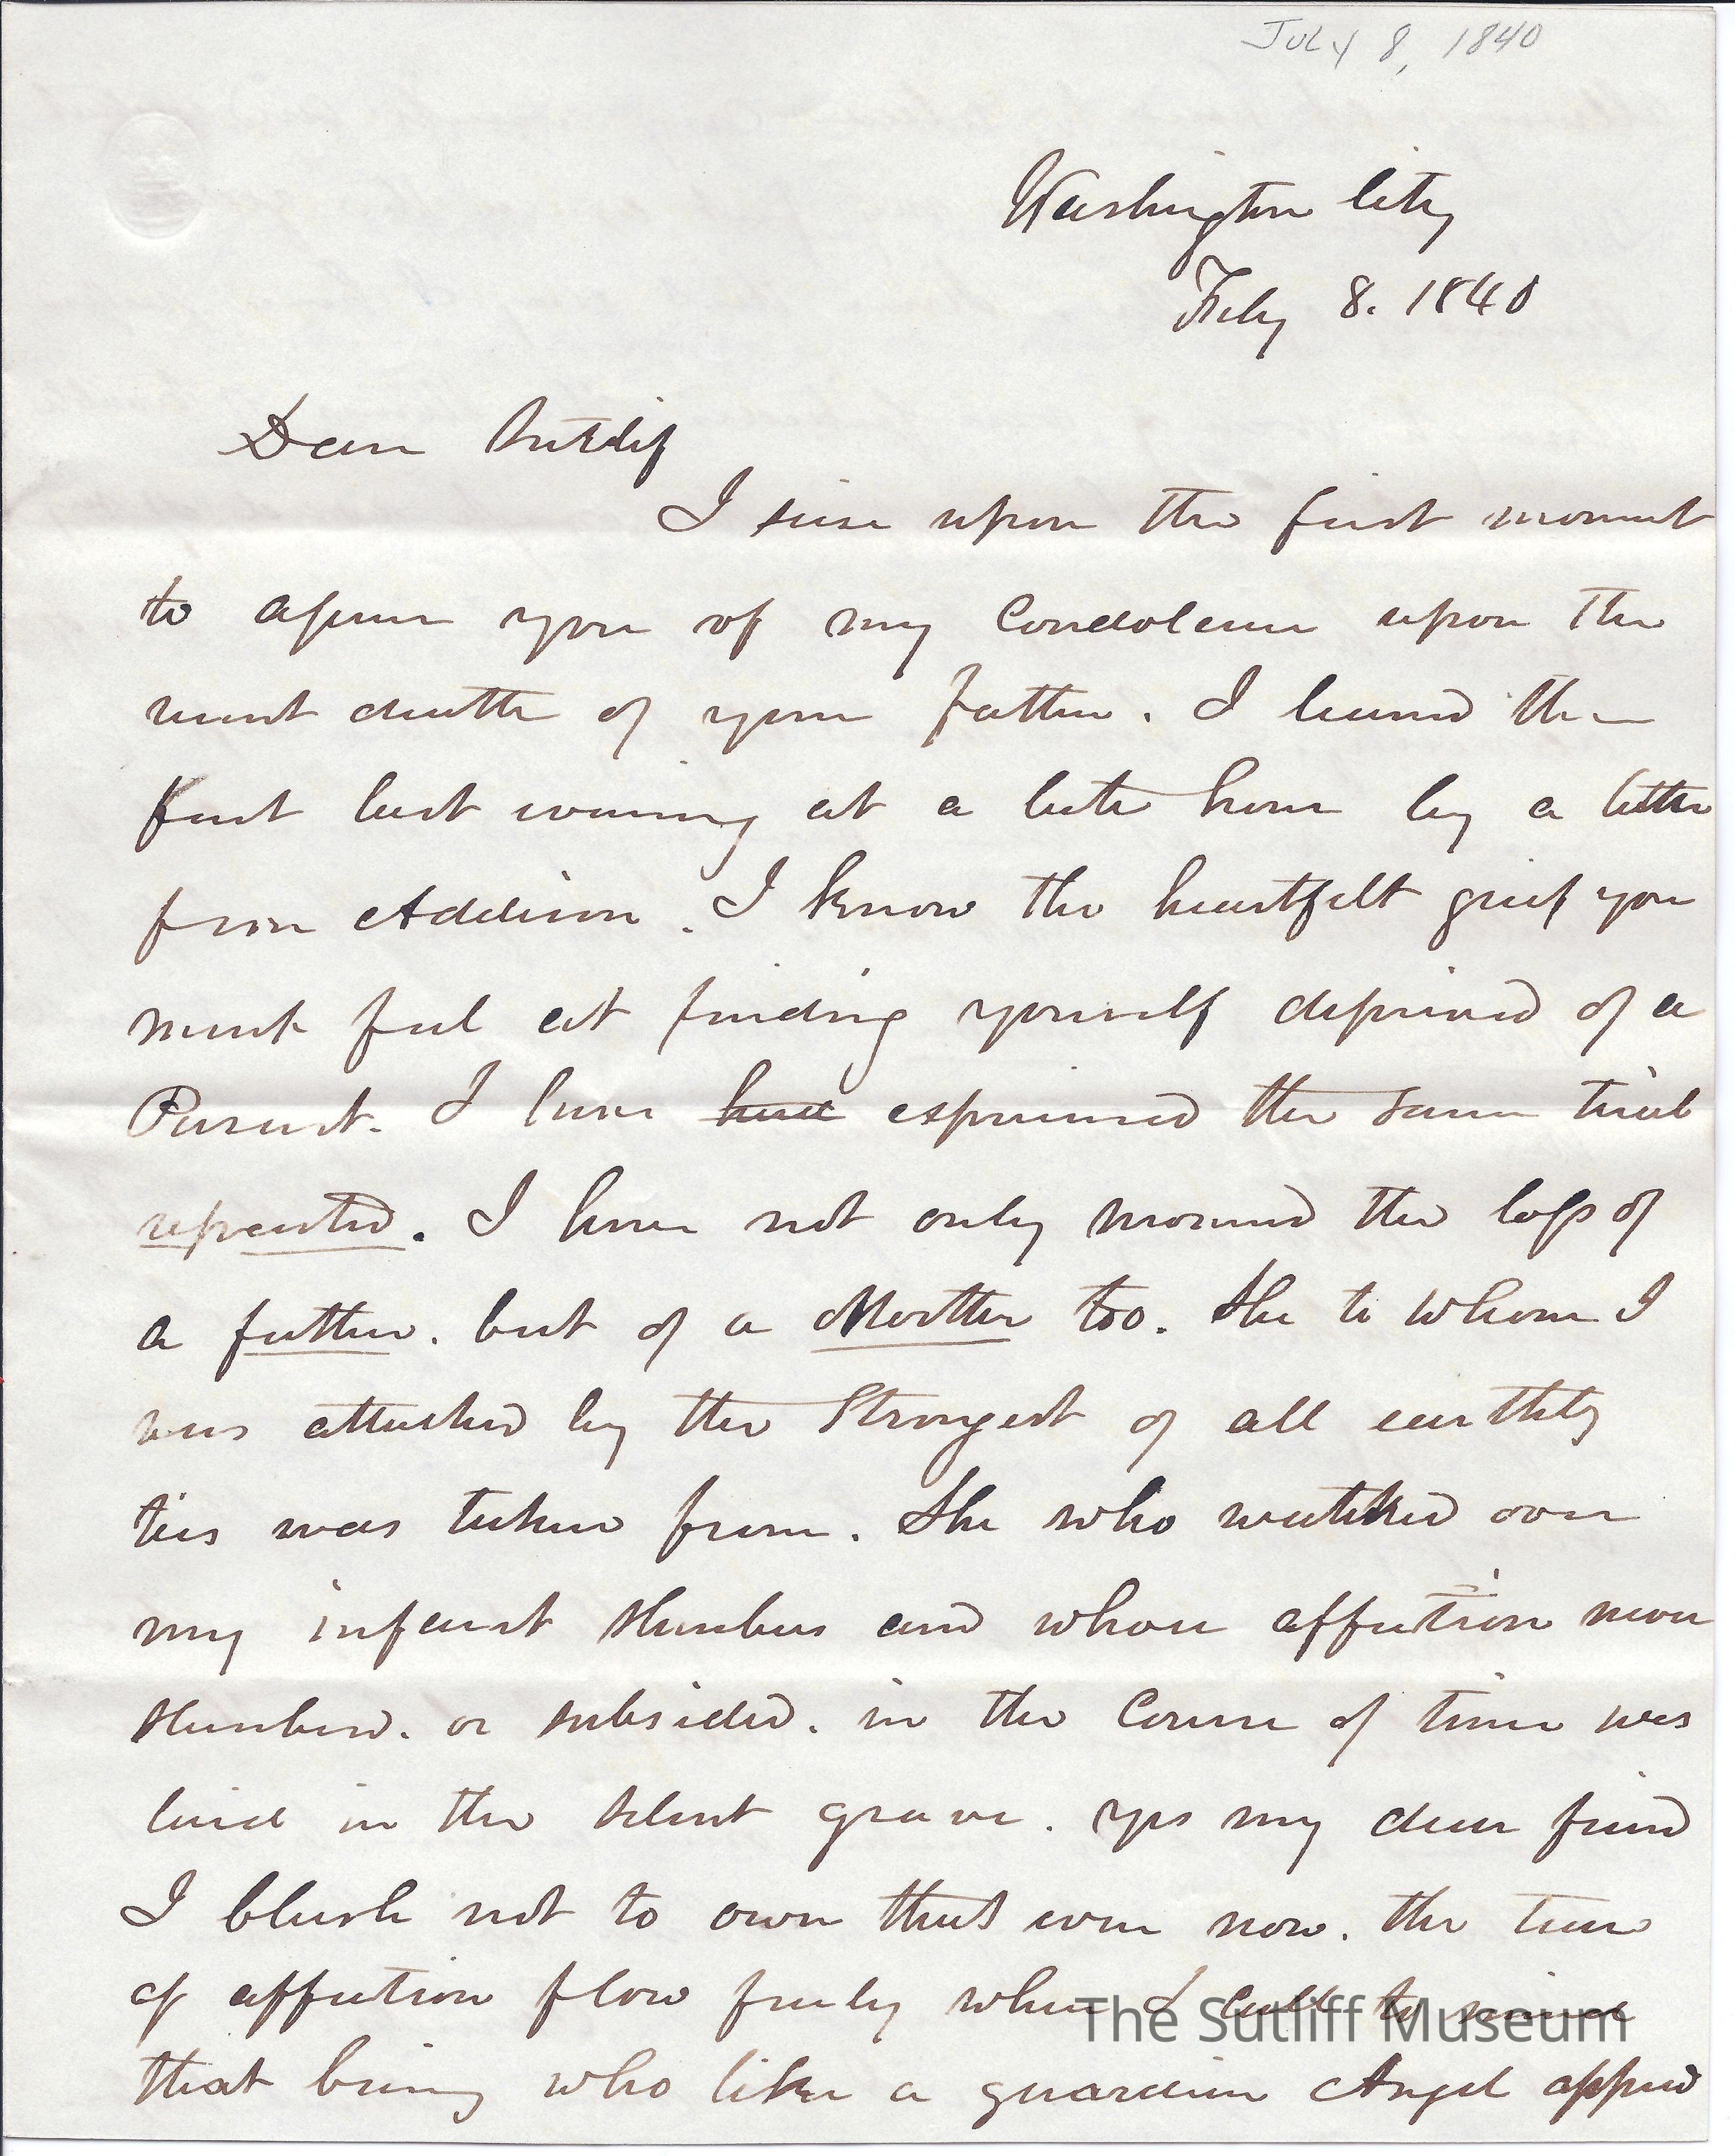 July 8, 1840
Washington City
Feby 8. 1840
Dear Sutlif
I seise upon the first moment
to asure you of my Condolence upon the
recent death of your father. I learned the
fact last evening at a late hour by a letter
from Addison. I know the heartfelt grief you
must feel at finding yourself deprived of a
Parent. I have had experienced the same trial
repeated. I have not only mourned the loss of
a father. but of a Mother too. She to whom I
was attached by the Strongest of all earthly
ties was taken from. She who watched over
my infant slumbers and whose affection never
slumbered. or subsided. in the Course of time was
laid in the silent grave. Yes my dear friend
I blush not to own that even now. the tears
of affection flow freely when I call to mind
that being who like a guardian Angel appeared
The Sutliff Museum